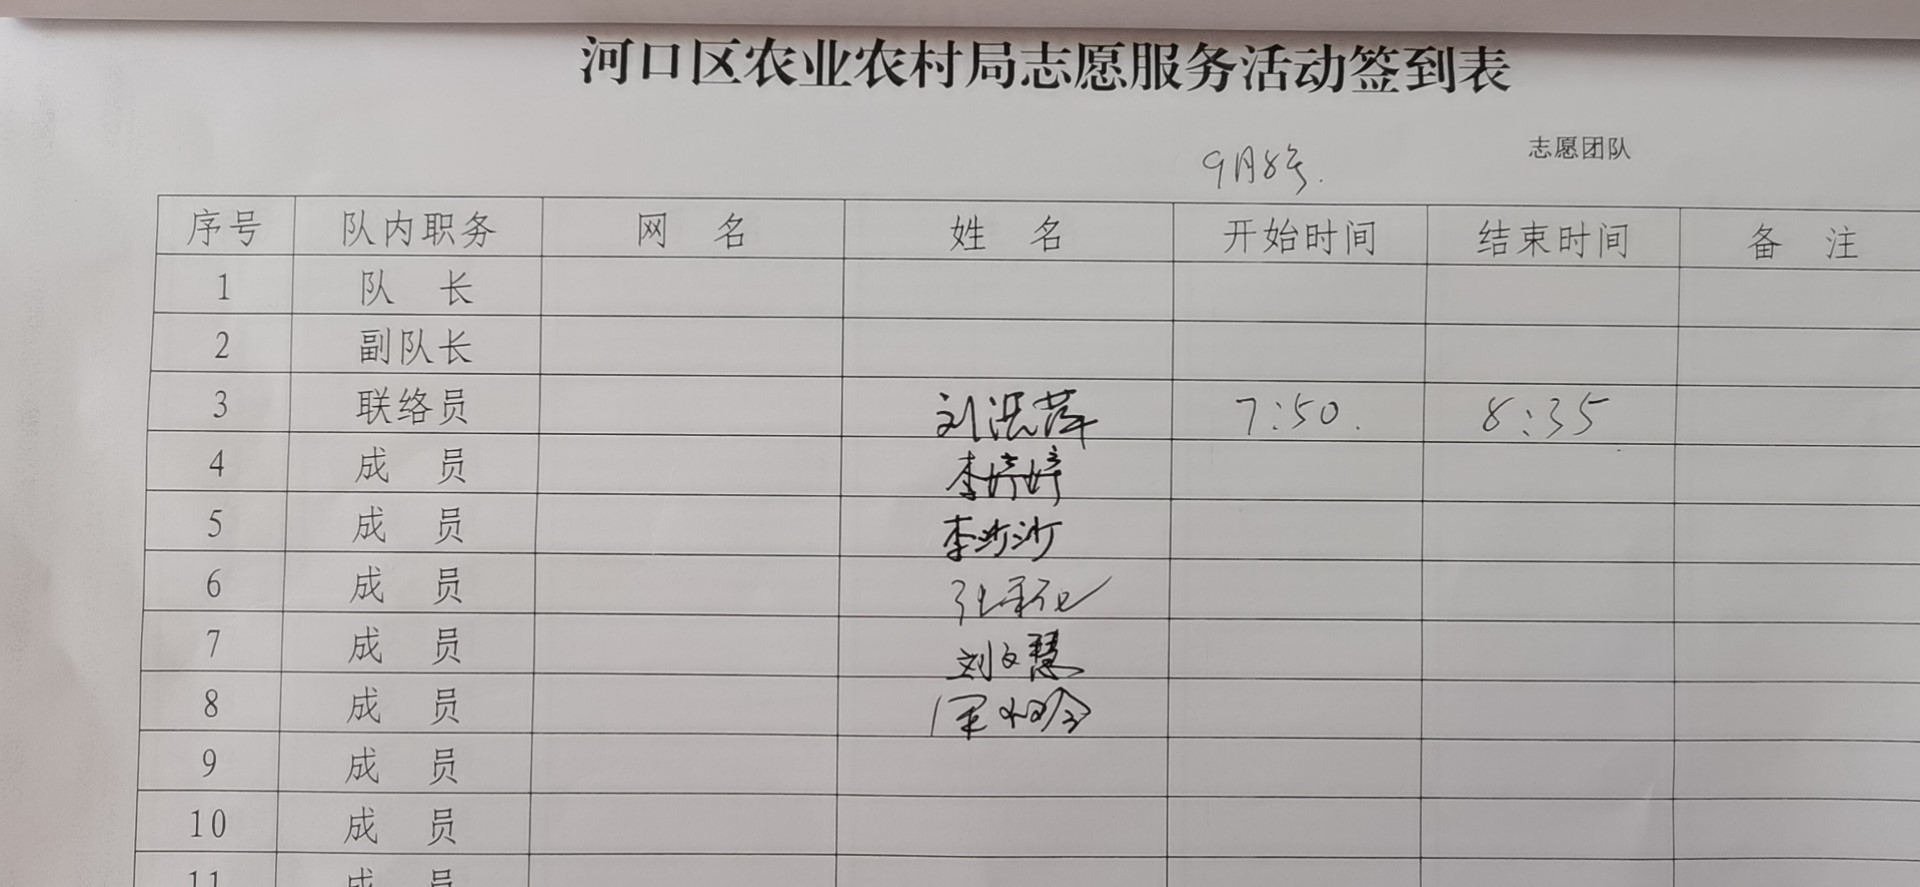 河口区农业农村局志愿服务活动签到表
9月8号. 志愿团队
序号 队内职务 网 名 姓 名 开始时间 结束时间 备 注
1 队 长
2 副队长
3 联络员 刘洪萍 7:50. 8:35
4 成 员 李婷婷
5 成 员 李沙沙
6 成 员 张
7 成 员 刘文慧
8 成 员
9 成 员
10 成 员
11 成 员